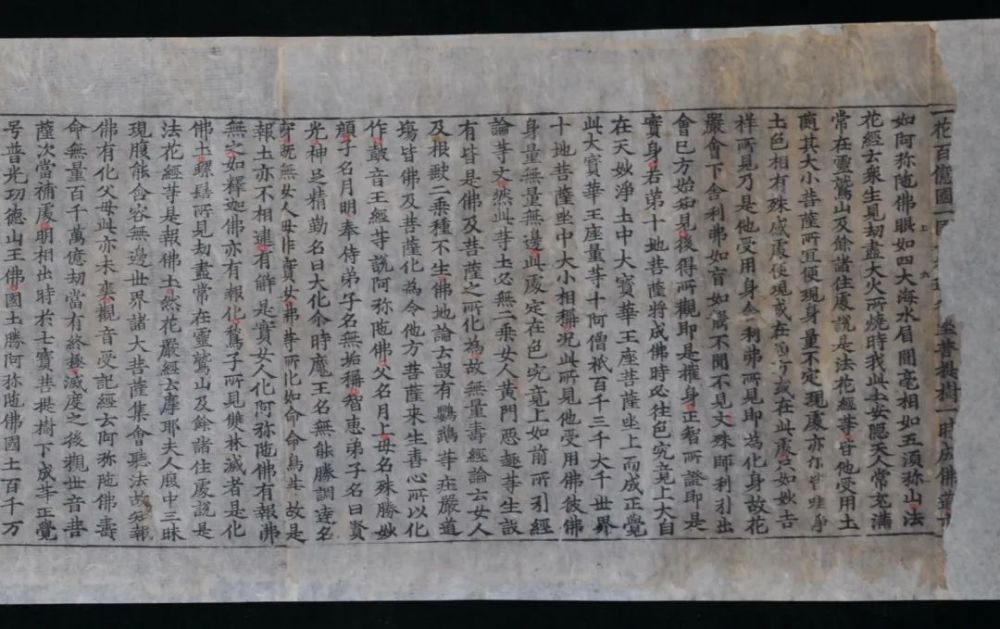 一花百億國一國
坐菩提樹一時成佛道
如阿弥陁佛眼如四大海水眉間毫相如五湏弥山法
花經云衆生見劫盡大火所燒時我此土安隠天人常充滿
常在靈鷲山及餘諸住處說是法花經等皆他受用土
随其大小菩薩所宜便現身量不定現處亦
土色相有殊或處便現或在或在此處只如妙吉
祥所見乃是他受用身舍利弗所見即為化身故花
嚴會下舍利弗如盲如聾不聞不見文殊師利引出
會已方始
見後得所觀即是權身正智所證即是
實身若第十地菩薩將成佛時必往色究竟上大自
在天妙淨土中大寶華王座菩薩坐上而成正覺
此大寶華王座量等十阿僧祇百千三千大千世界
十地菩薩坐中大小相稱况此所見他受用佛彼佛
身量無量無邊此處定在色究竟上如前所引經
論等文然此等土必無二乗女人黃門惡趣等生設
有皆是佛及菩薩之所化為故無量壽經論云女人
及根缺二乗種不生佛地論云設有鸚鵡等莊嚴道
塲皆佛及菩薩化為令他方菩薩来生善心所以化
作皷音王經等說阿弥陁佛父名月上母名殊勝妙
顔子名月明奉侍弟子名無垢稱智惠弟子名曰賢
光神足精勤名曰大化尒時魔王名無能勝調逹名
穿旣無女人母非實女弗等所化如命命鳥等故是
報土亦不相違有解是實女人化阿弥陁佛有報佛
無之如釋迦佛亦有報化鶖子所見雙林滅者是化
佛土螺髻所見劫盡常在靈鷲山及餘諸住處說是
法花經等是報佛土然花嚴經云摩耶夫人腹中三昧
現腹能含容無邊世界諸大菩薩集會聽法故知報
佛有化父母此亦未爽觀音受記經云阿弥陁佛壽
命無量百千萬億劫當有終極滅度之後觀世音菩
薩次當補處明相出時於七寶菩提樹下成等正覺
号普光功德山王佛國土勝阿弥陁佛國土百千万